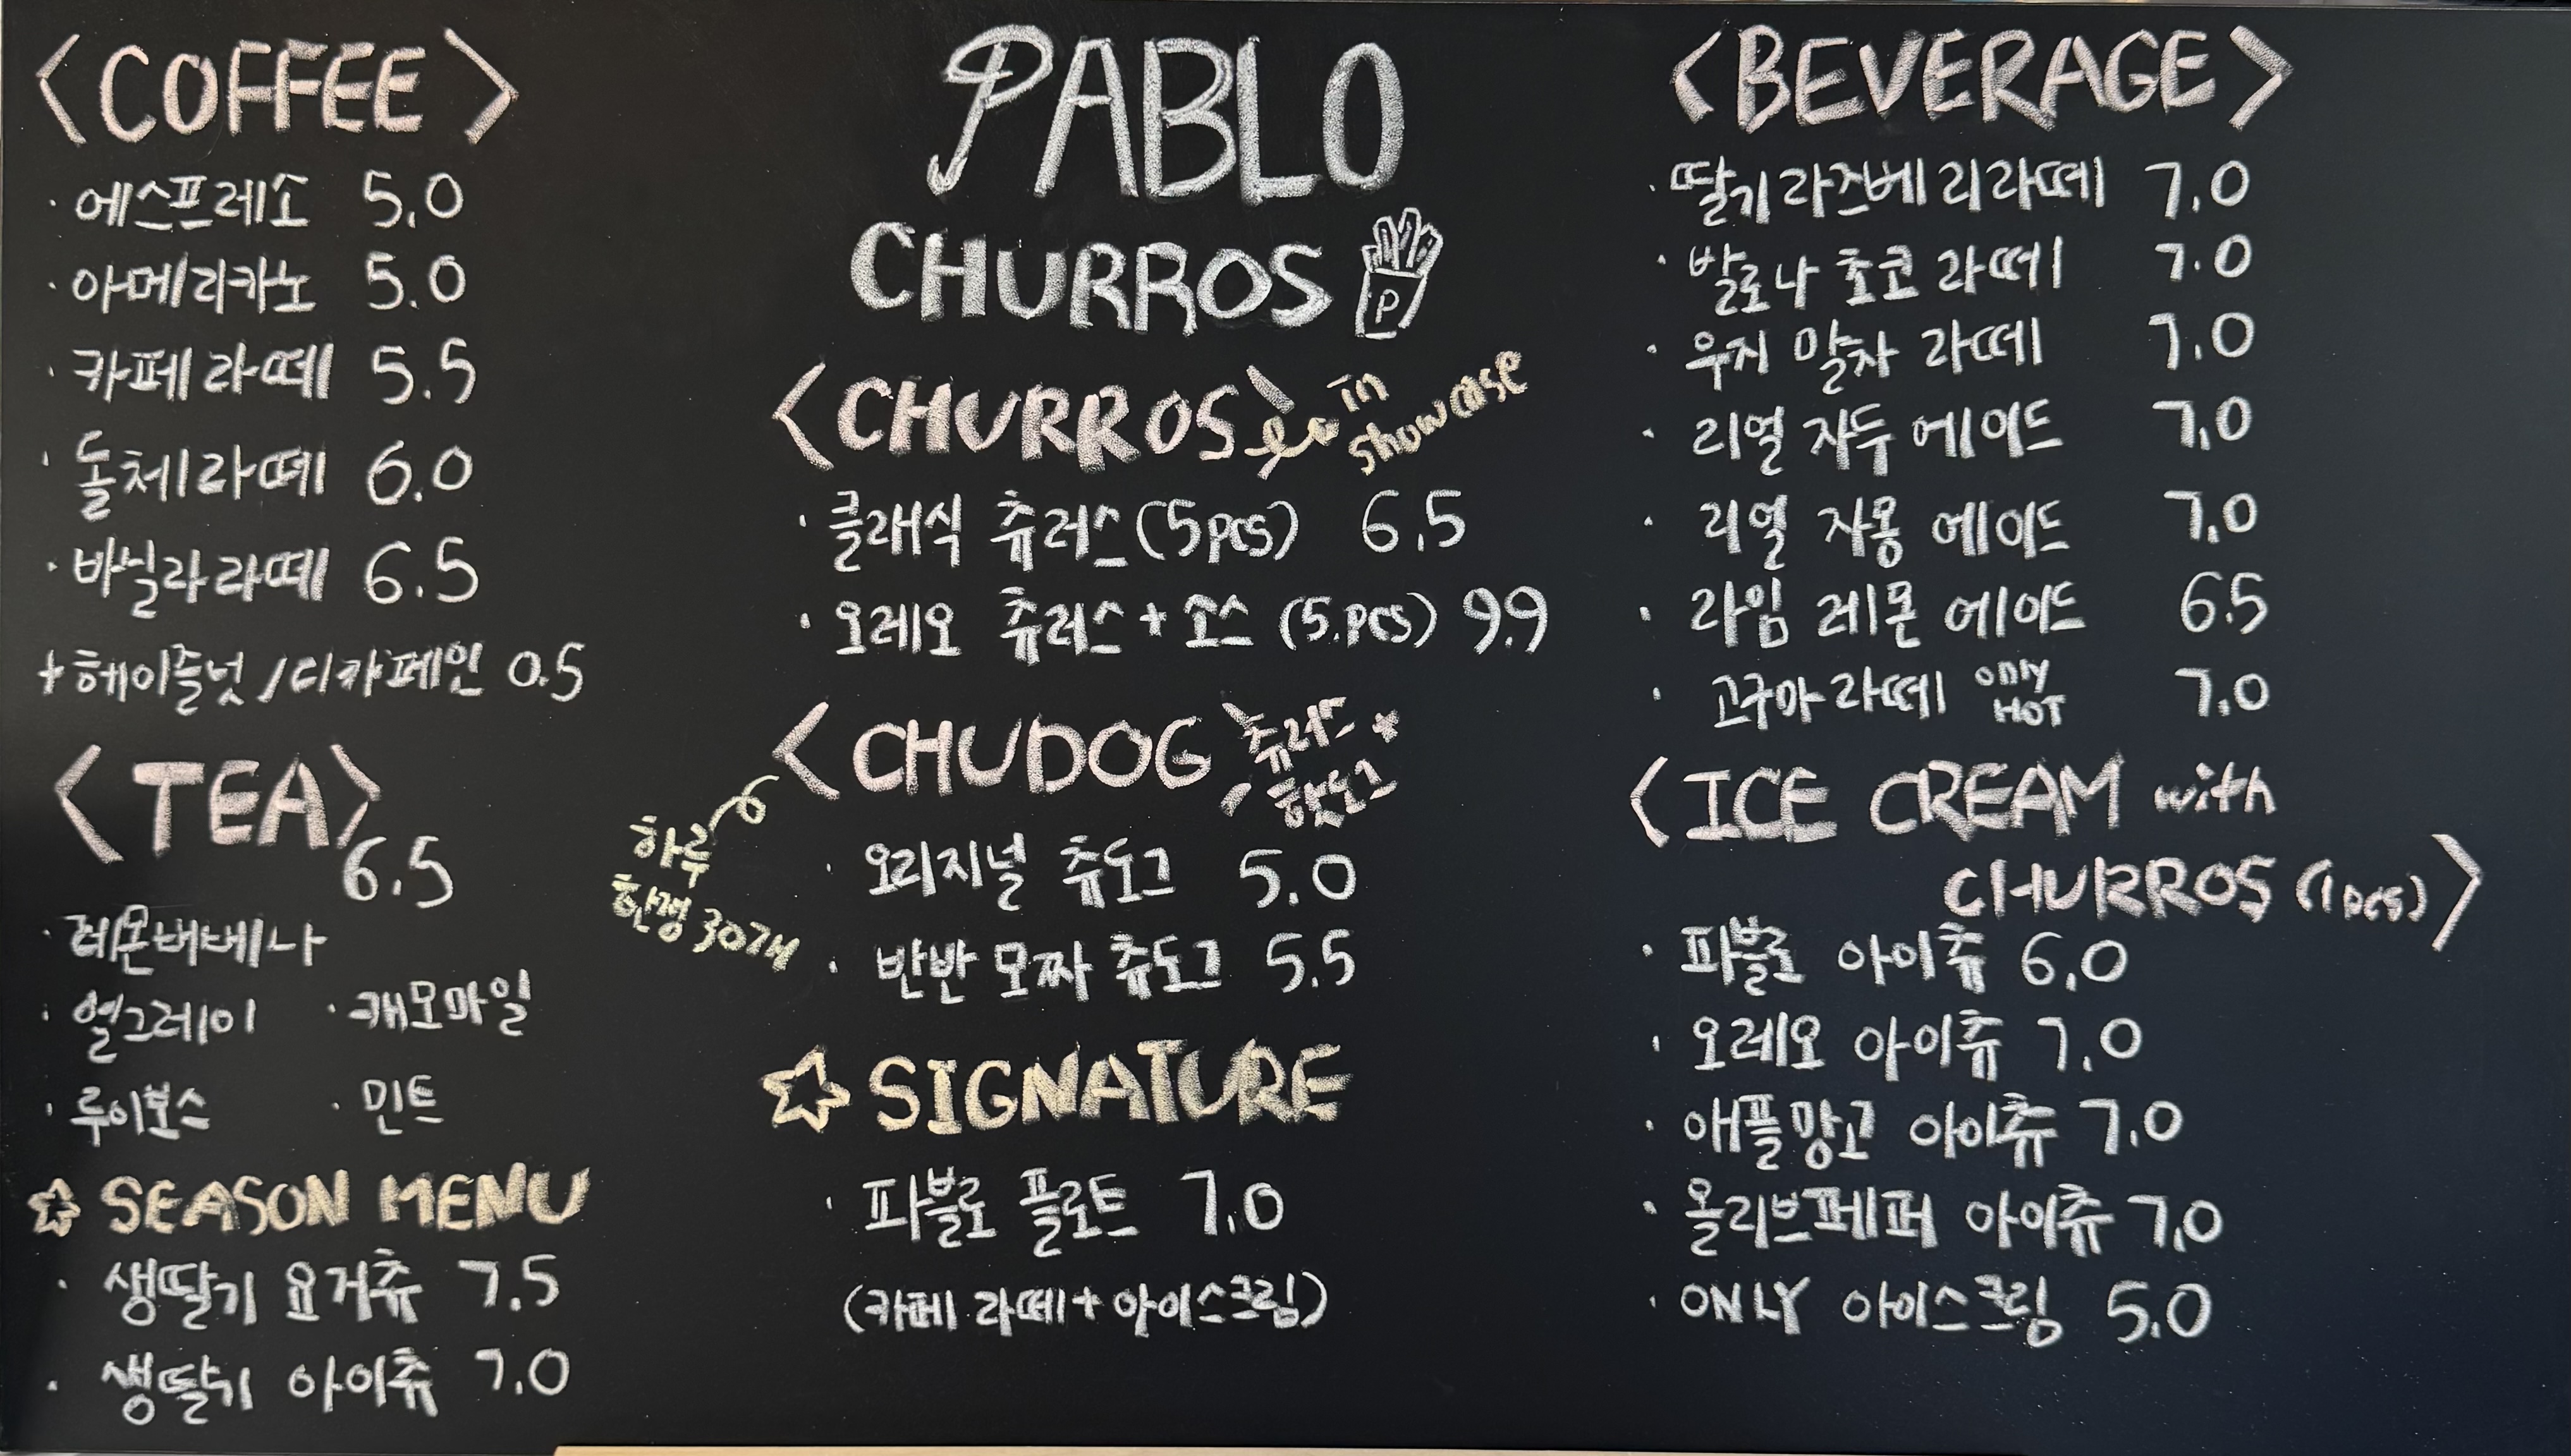 <COFFEE>
· 에스프레소 5.0
· 아메리카노 5.0
· 카페라떼 5.5
· 돌체라떼 6.0
· 바닐라라떼 6.5
+ 헤이즐넛/디카페인 0.5
<TEA>
6.5
· 레몬버베나
· 얼그레이 · 캐모마일
· 루이보스 · 민트
☆ SEASON MENU
· 생딸기 요거츄 7.5
· 생딸기 아이츄 7.0
PABLO
CHURROS
P
<CHURROS> in
showcase
· 클래식 츄러스 (5pcs) 6.5
· 오레오 츄러스 + 소스 (5.pcs) 9.9
<CHUDOG> 츄러스 +
핫도그
하루
한정 30개
· 오리지널 츄도그 5.0
· 반반 모짜 츄도그 5.5
☆ SIGNATURE
· 파블로 플로트 7.0
(카페 라떼 + 아이스크림)
<BEVERAGE>
· 딸기라즈베리라떼 7.0
· 발로나 초코 라떼 7.0
· 우지 말차 라떼 7.0
· 리얼 자두 에이드 7.0
· 리얼 자몽 에이드 7.0
· 라임 레몬 에이드 6.5
· 고구마라떼 ONLY HOT 7.0
<ICE CREAM with
CHURROS (1pcs)>
· 파블로 아이츄 6.0
· 오레오 아이츄 7.0
· 애플망고 아이츄 7.0
· 올리브페퍼 아이츄 7.0
· ONLY 아이스크림 5.0